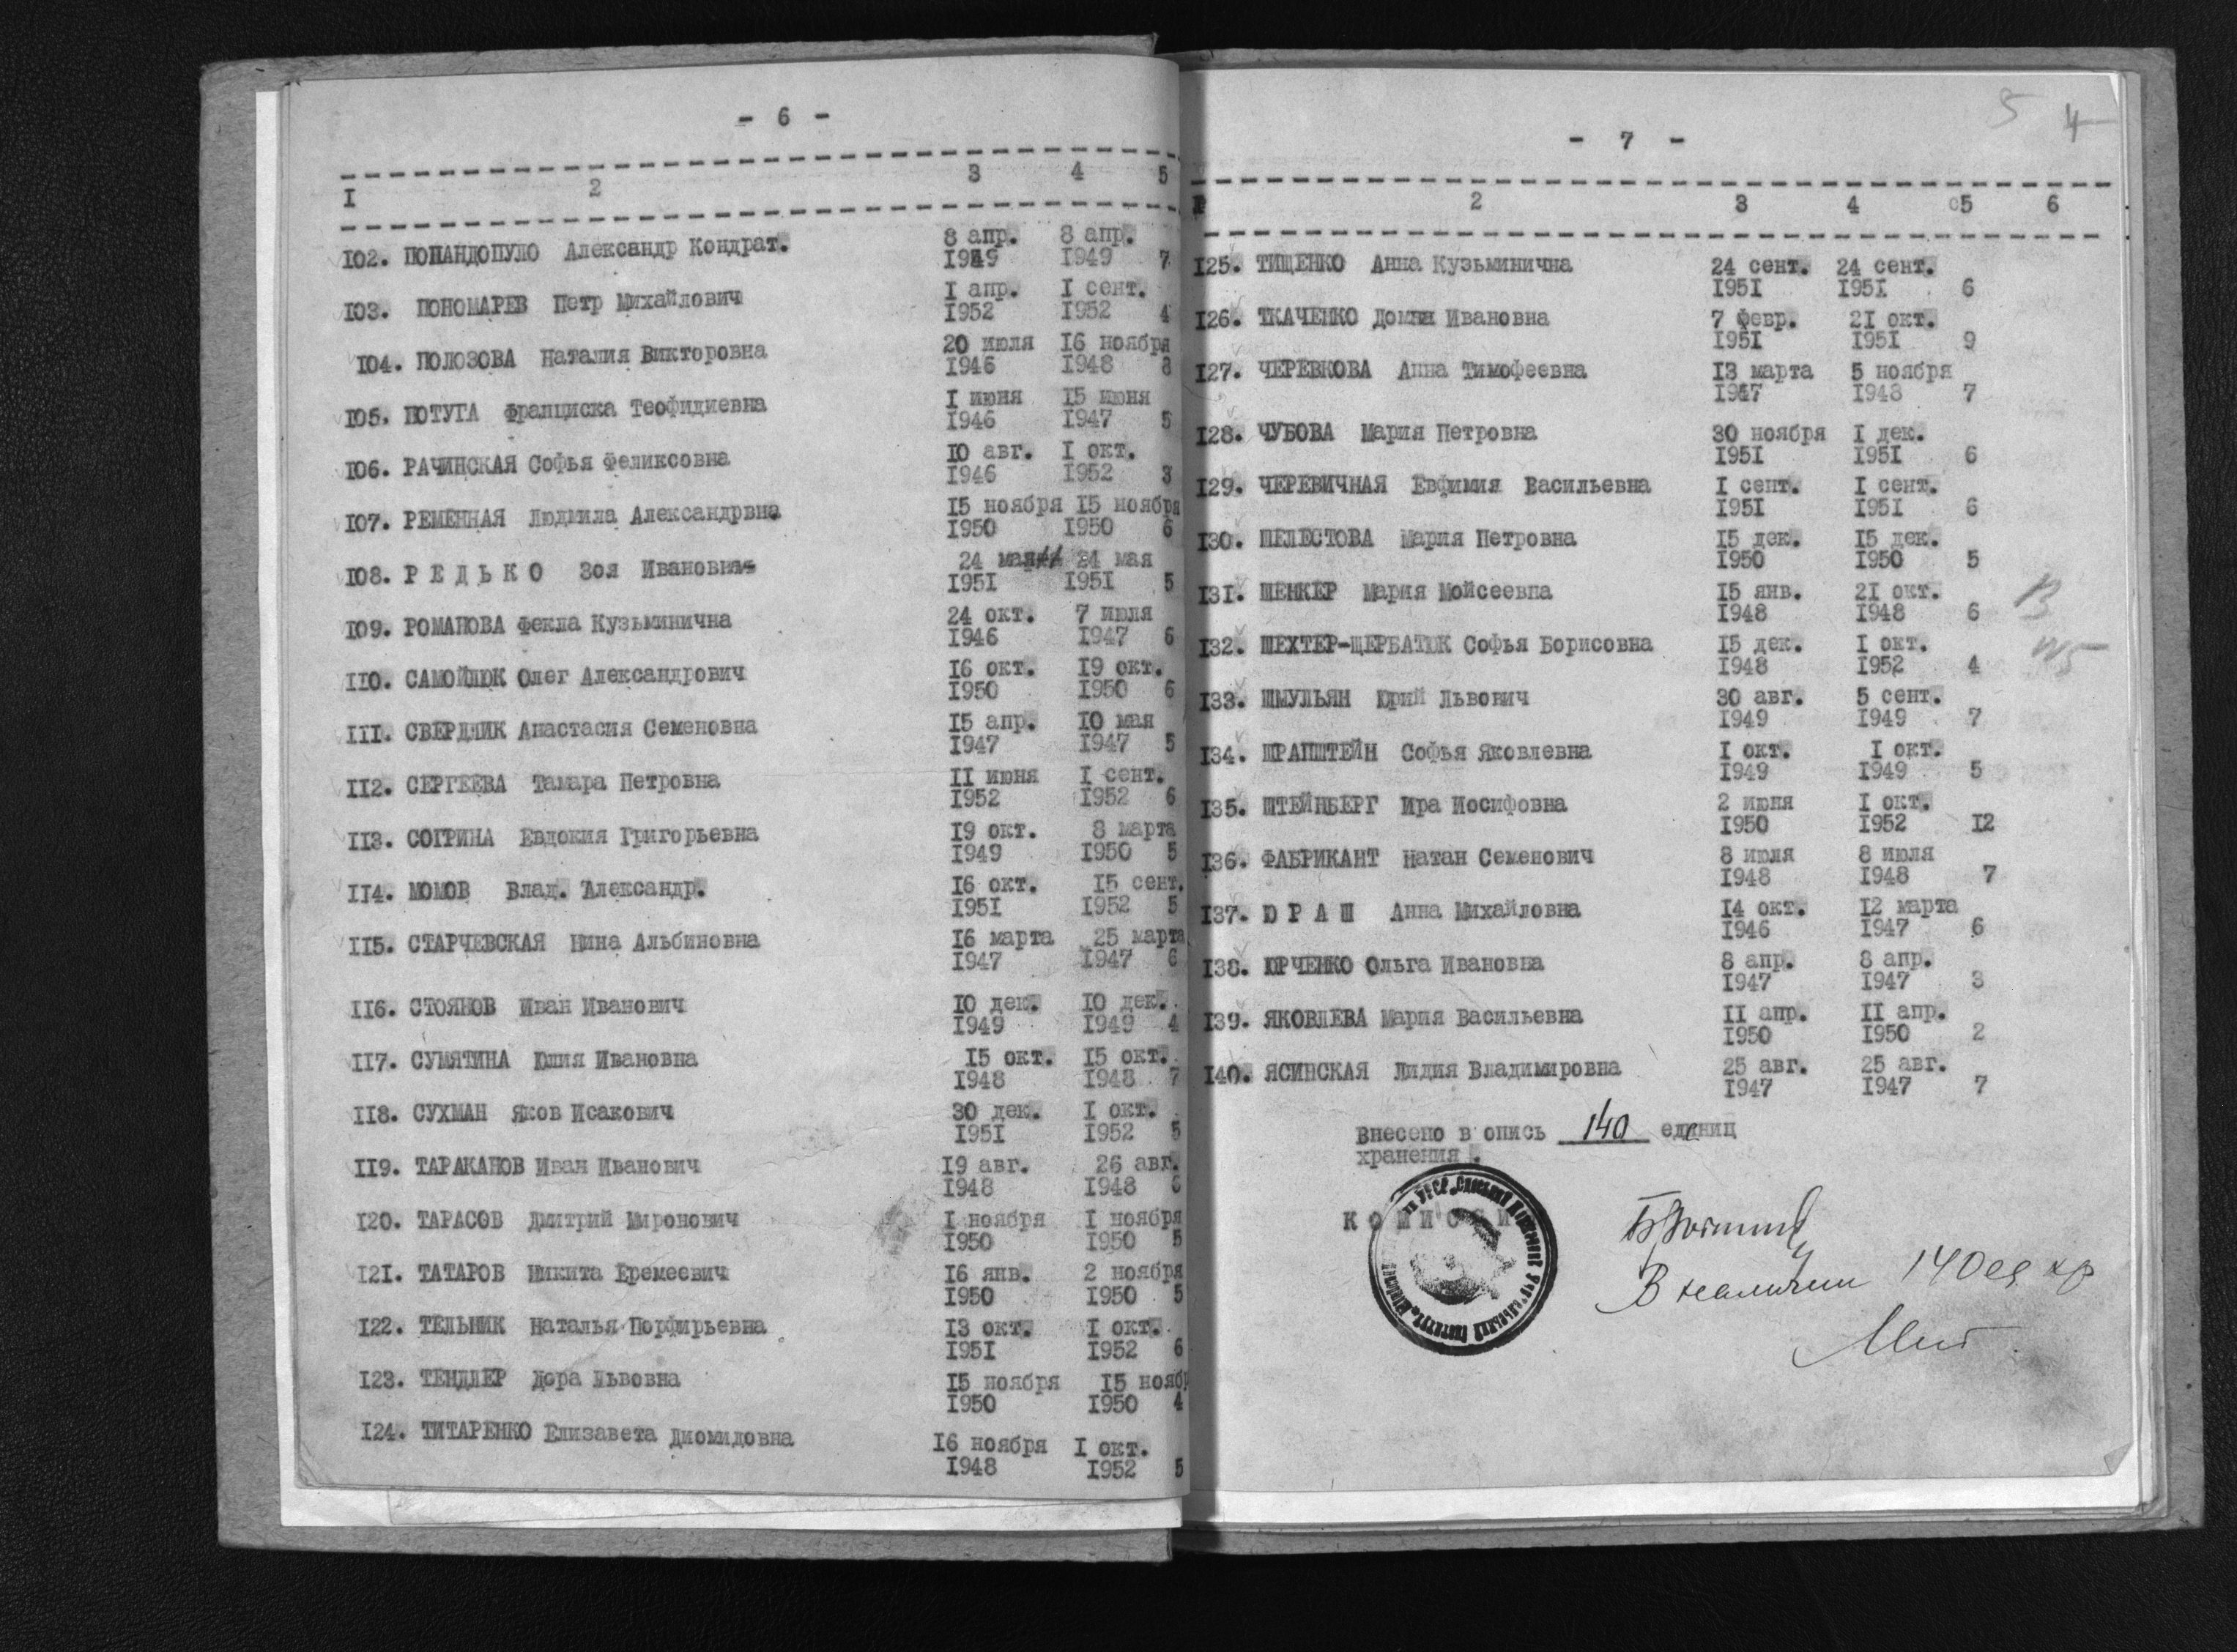 - 6 -
I 2 3 4 5
102. ПОПАНДОПУЛО Александр Кондрат. 8 апр. 8 апр.
1949 1949 7
103. ПОНОМАРЕВ Петр Михайлович I апр. I сент.
1952 1952 4
104. ПОЛОЗОВА Наталия Викторовна 20 июля 16 ноября
1946 1948 8
105. ПОТУГА Франциска Теофидиевна I июня 15 июня
1946 1947 5
106. РАЧИНСКАЯ Софья Феликсовна 10 авг. I окт.
1946 1952 3
107. РЕМЕННАЯ Людмила Александрвна 15 ноября 15 ноября
1950 1950 6
108. Р Е Д Ь К О Зоя Ивановна 24 мая 24 мая
1951 1951 5
109. РОМАНОВА Фекла Кузьминична 24 окт. 7 июля
1946 1947 6
110. САМОЙЛЮК Олег Александрович 16 окт. 19 окт.
1950 1950 6
111. СВЕРДЛИК Анастасия Семеновна 15 апр. 10 мая
1947 1947 5
112. СЕРГЕЕВА Тамара Петровна 11 июня I сент.
1952 1952 6
113. СОГРИНА Евдокия Григорьевна 19 окт. 8 марта
1949 1950 5
114. МОМОВ Влад. Александр. 16 окт. 15 сент.
1951 1952 5
115. СТАРЧЕВСКАЯ Нина Альбиновна 16 марта 25 марта
1947 1947 6
116. СТОЯНОВ Иван Иванович 10 дек. 10 дек.
1949 1949 4
117. СУМЯТИНА Юлия Ивановна 15 окт. 15 окт.
1948 1948 7
118. СУХМАН Яков Исакович 30 дек. I окт.
1951 1952 5
119. ТАРАКАНОВ Иван Иванович 19 авг. 26 авг.
1948 1948 6
120. ТАРАСОВ Дмитрий Миронович I ноября I ноября
1950 1950 5
121. ТАТАРОВ Никита Еремеевич 16 янв. 2 ноября
1950 1950 5
122. ТЕЛЬНИК Наталья Порфирьевна 13 окт. I окт.
1951 1952 6
123. ТЕНДЛЕР Дора Львовна 15 ноября 15 ноябр
1950 1950 4
124. ТИТАРЕНКО Елизавета Диомидовна 16 ноября I окт.
1948 1952 5
5 4
- 7 -
2 3 4 5 6
125. ТИЩЕНКО Анна Кузьминична 24 сент. 24 сент.
1951 1951 6
126. ТКАЧЕНКО Домна Ивановна 7 февр. 21 окт.
1951 1951 9
127. ЧЕРЕВКОВА Анна Тимофеевна 13 марта 5 ноября
1947 1948 7
128. ЧУБОВА Мария Петровна 30 ноября I дек.
1951 1951 6
129. ЧЕРЕВИЧНАЯ Евфимия Васильевна I сент. I сент.
1951 1951 6
130. ШЕЛЕСТОВА Мария Петровна 15 дек. 15 дек.
1950 1950 5
131. ШЕНКЕР Мария Мойсеевна 15 янв. 21 окт.
1948 1948 6
132. ШЕХТЕР-ЩЕРБАТЮК Софья Борисовна 15 дек. I окт.
1948 1952 4
133. ШМУЛЬЯН Юрий Львович 30 авг. 5 сент.
1949 1949 7
134. ШРАПШТЕЙН Софья Яковлевна I окт. I окт.
1949 1949 5
135. ШТЕЙНБЕРГ Ира Иосифовна 2 июня I окт.
1950 1952 12
136. ФАБРИКАНТ Натан Семенович 8 июля 8 июля
1948 1948 7
137. Ю Р А Ш Анна Михайловна 14 окт. 12 марта
1946 1947 6
138. ЮРЧЕНКО Ольга Ивановна 8 апр. 8 апр.
1947 1947 3
139. ЯКОВЛЕВА Мария Васильевна 11 апр. 11 апр.
1950 1950 2
140. ЯСИНСКАЯ Лидия Владимировна 25 авг. 25 авг.
1947 1947 7
Внесено в опись 140 единиц
хранения.
К О М И С С И
В наличии 140 ед хр